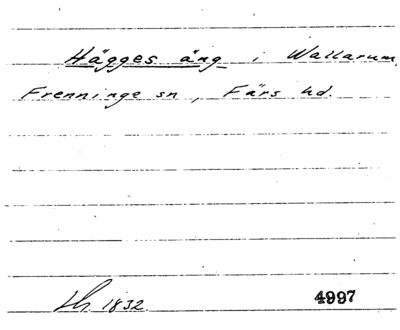 Hägges äng i Wallarum,
Frenninge sn, Färs hd.
1832. 4997